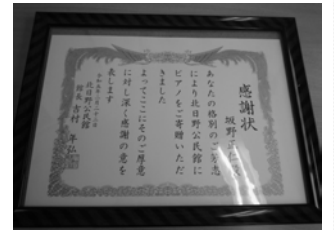 感謝状
坂野正仁殿
あなたの格別のご芳志
により抗日野公民館に
ピアノをご寄贈いただ
きました
よってここにそのご厚意
に対し深く感謝の意を
表します
館長 吉村